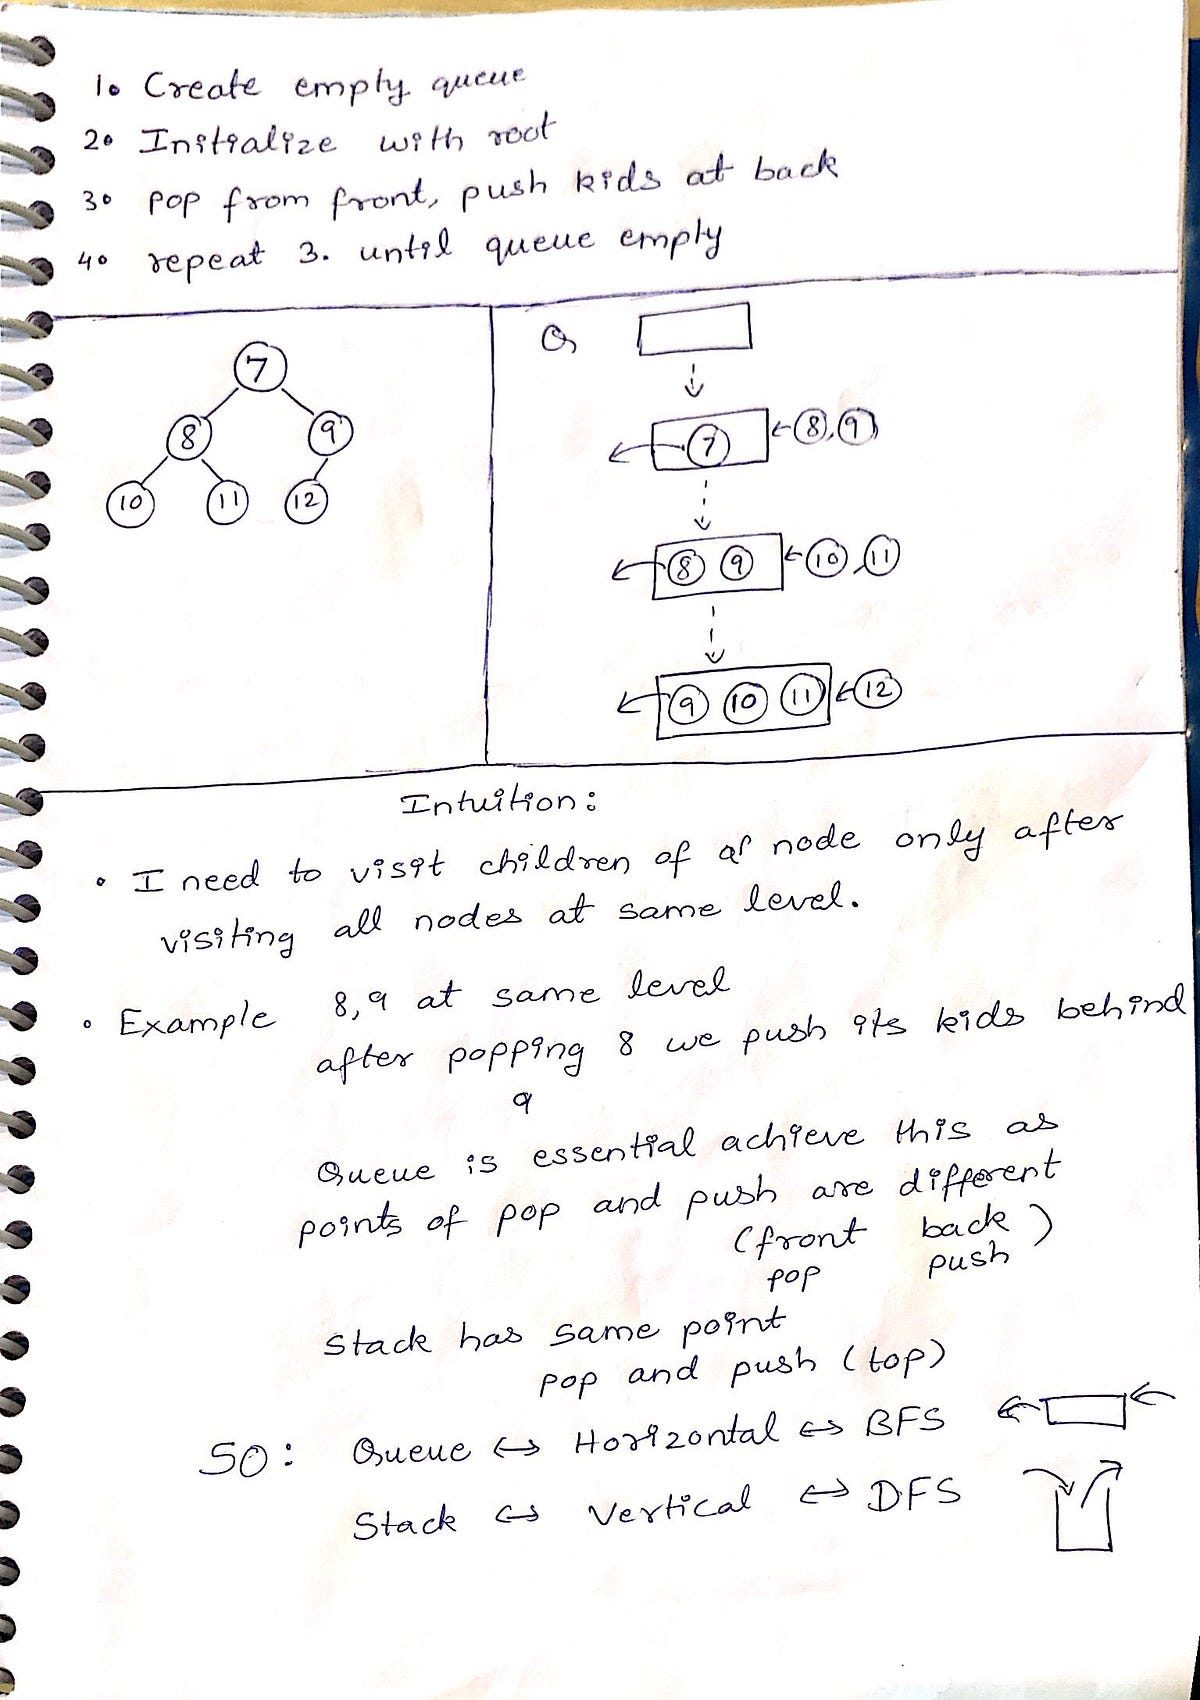 1. Create empty queue
2. Initialize with root
3. pop from front, push kids at back
4. repeat 3. until queue empty
7
8 9
10 11 12
Q
7 8, 9
8 9 10, 11
9 10 11 12
Intuition:
• I need to visit children of a node only after
visiting all nodes at same level.
• Example 8,9 at same level
after popping 8 we push its kids behind
9
Queue is essential achieve this as
points of pop and push are different
(front back)
pop push
Stack has same point
pop and push (top)
SO: Queue ↔ Horizontal ↔ BFS
Stack ↔ Vertical ↔ DFS